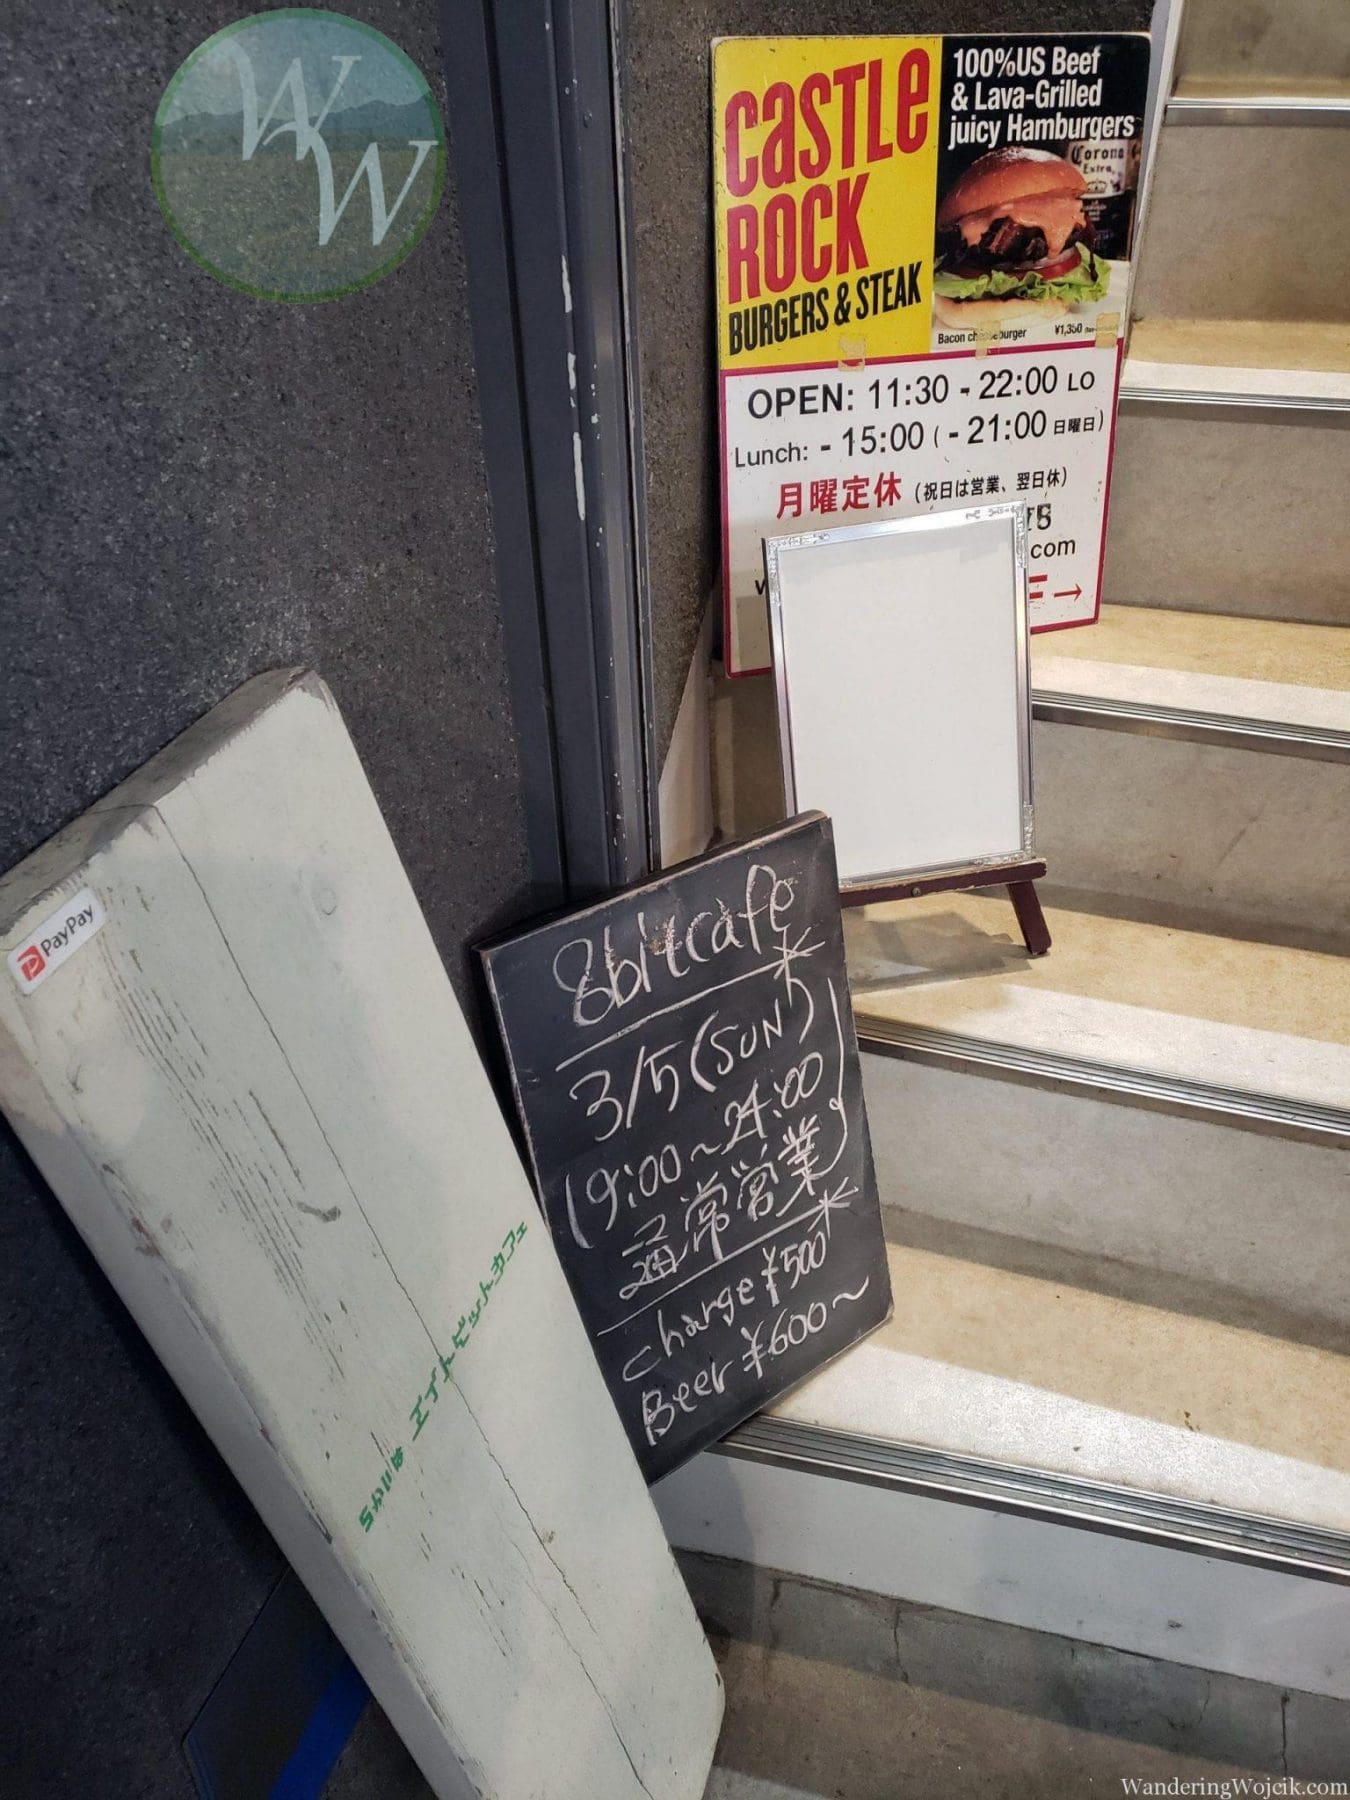 WW
CASTLE
ROCK
BURGERS & STEAK
100%US Beef
& Lava-Grilled
juicy Hamburgers
Corona
Extra
Bacon cheeseburger ¥1,350
OPEN: 11:30 - 22:00 LO
Lunch: - 15:00 ( - 21:00 日曜日)
月曜定休 (祝日は営業、翌日休)
.com
→
PayPay
8bitcafe
3/5 (SUN)
19:00～24:00
通常営業
charge ¥500
Beer ¥600～
エイトビットカフェ
WanderingWojcik.com